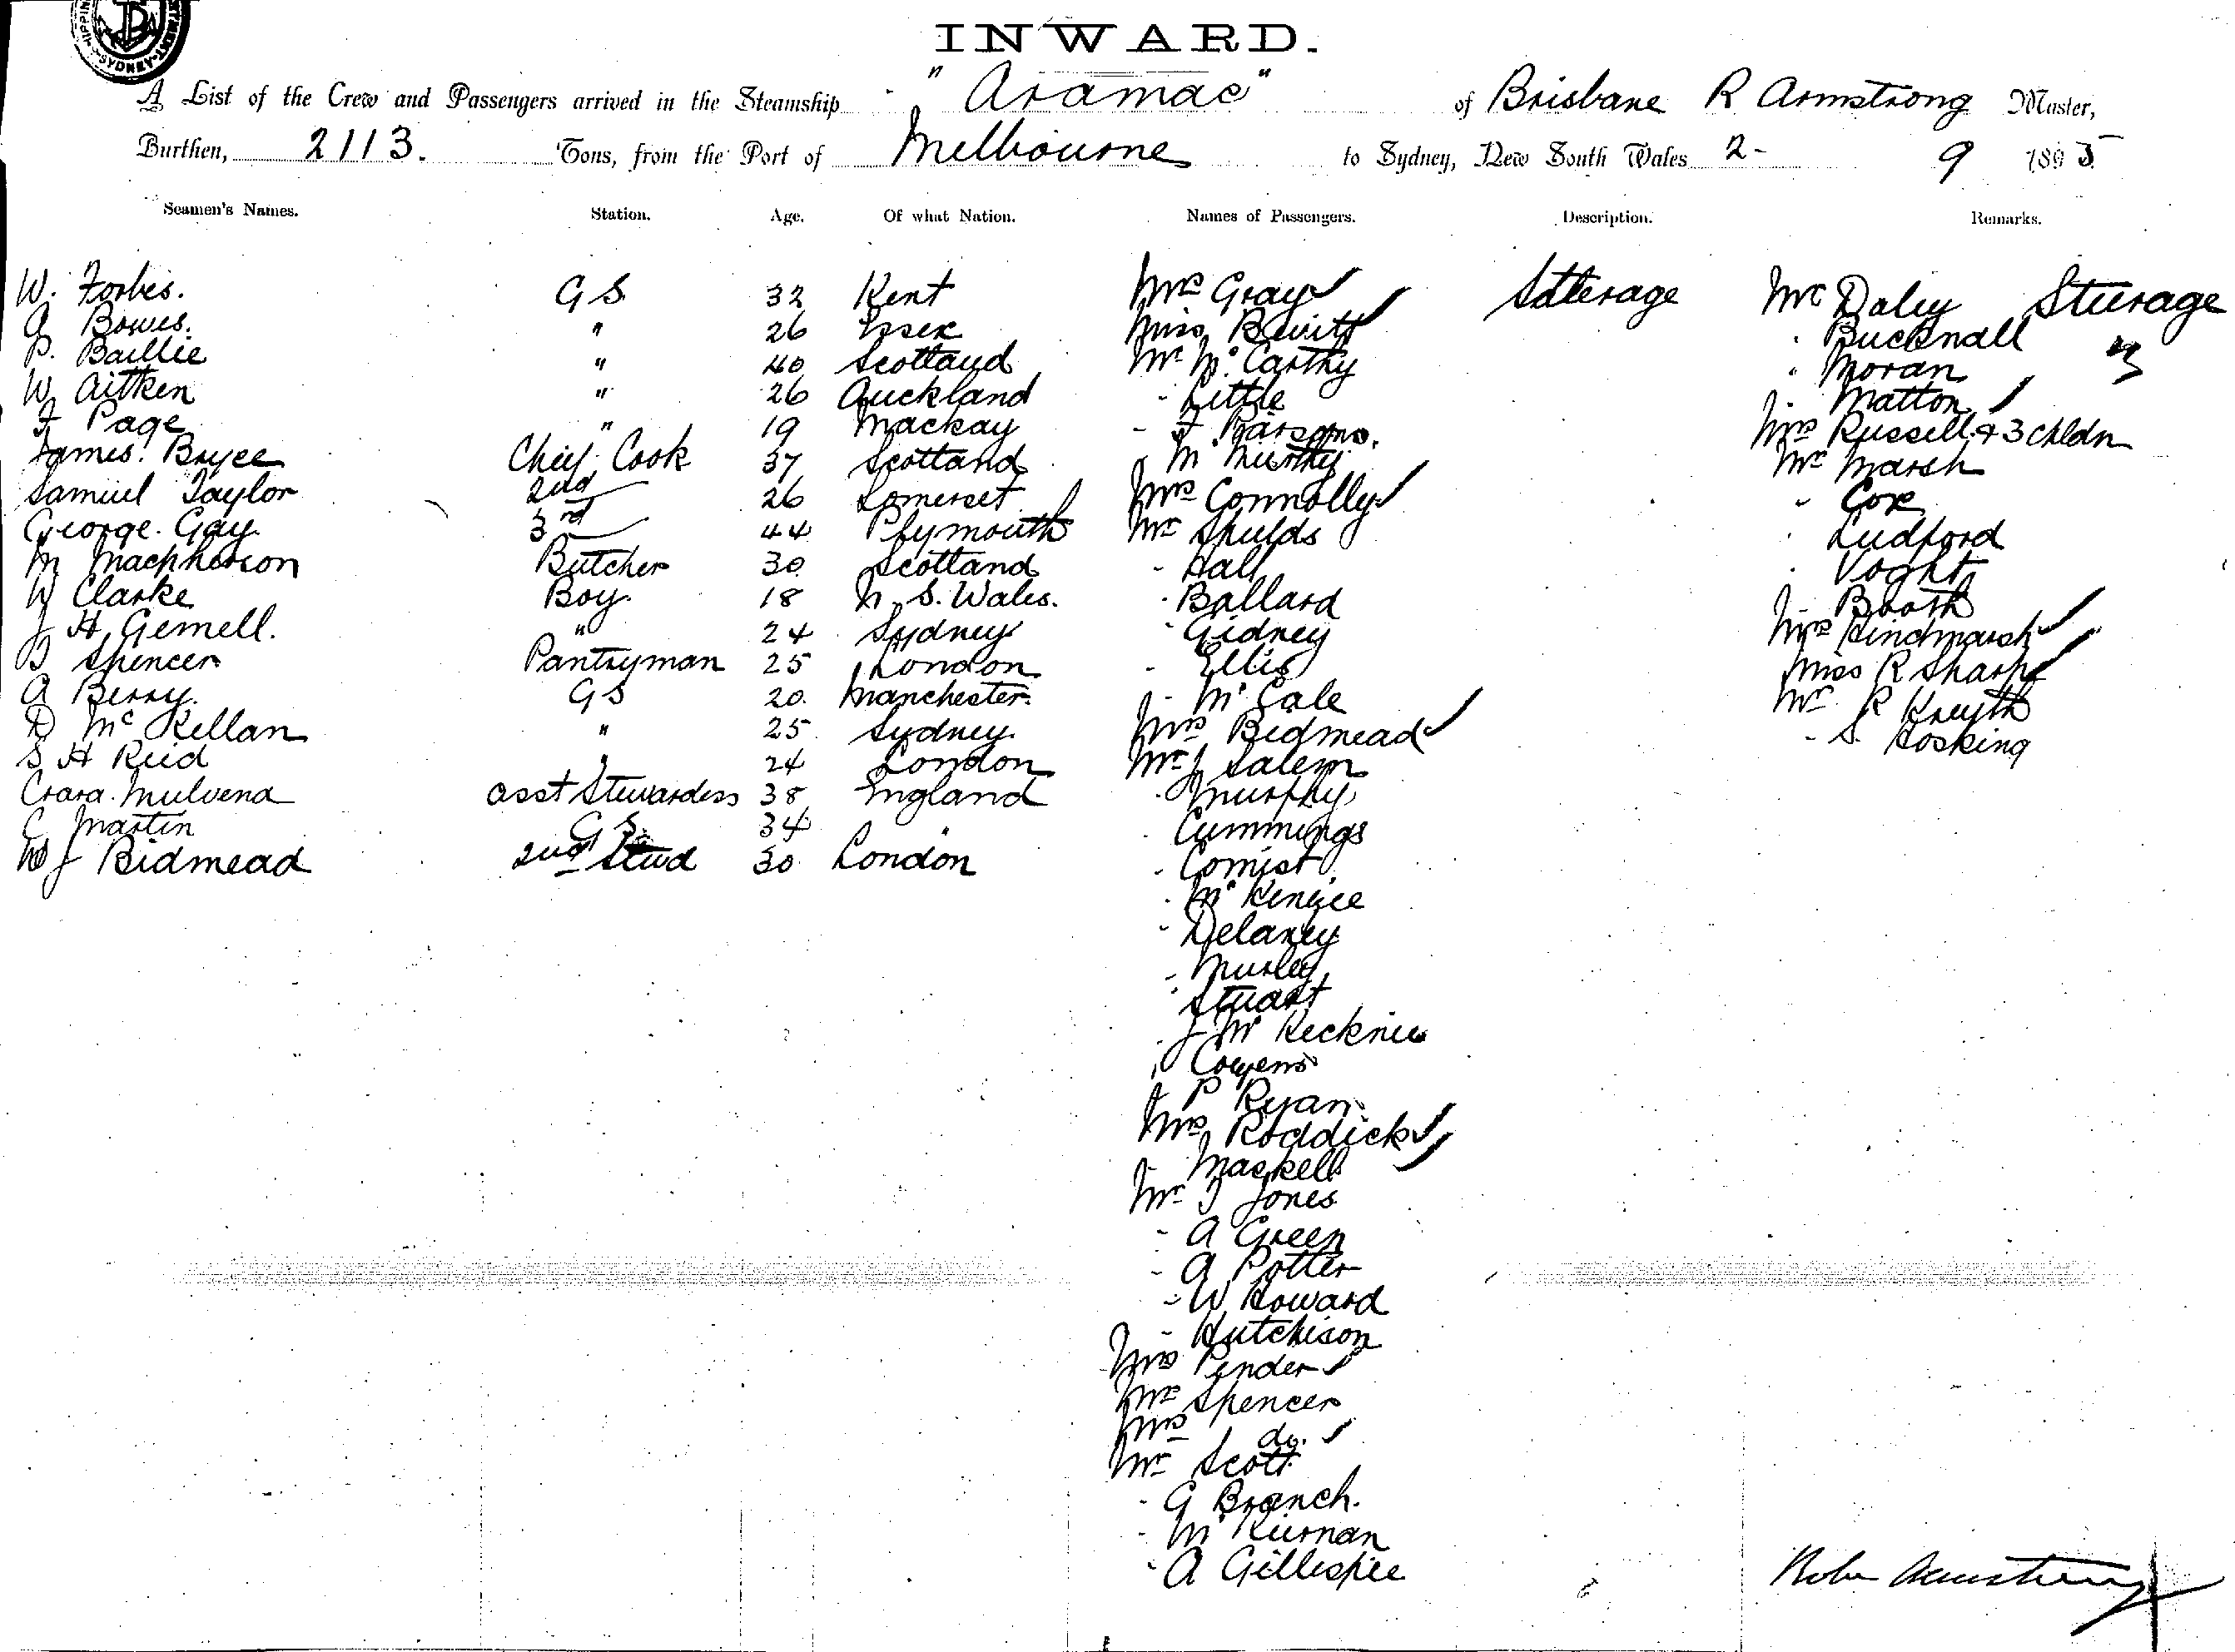 SYDNEY
INWARD.
A List of the Crew and Passengers arrived in the Steamship "Aramac" of Brisbane R Armstrong Master,
Burthen, 2113. Tons, from the Port of Melbourne to Sydney, New South Wales 2- 9 1895
Seamen's Names. Station. Age. Of what Nation. Names of Passengers. Description. Remarks.
W. Forbes. G S. 32 Kent Mrs Gray Steerage Mr Daley Steerage
A Bowes. " 26 Essex Miss Bewitt " Bucknall "
P. Baillie " 40 Scotland Mr McCarthy " Moran
W Aitken " 26 Auckland - Little - Matton
F Page " 19 Mackay - J Parsons. Mrs Russell & 3 Chldn
James Bryce Chief Cook 37 Scotland " M Murphy Mr Marsh
Samuel Taylor 2nd 26 Somerset Mrs Connolly - Cox
George Gay 3rd 44 Plymouth Mr Shulds Ludford
M Macpherson Butcher 30 Scotland - Hall Voght
W Clarke Boy. 18 N. S. Wales. - Ballard - Booth
J H Gemell. " 24 Sydney - Gidney Mrs Hindmarsh
Spencer Pantryman 25 London - Ellis Miss R Sharpe
A Berry. G S 20. Manchester. - McCale Mr R
D McKellan " 25 Sydney. Mrs Bidmead - S. Hosking
S H Reid " 24 London Mr J Salem
Clara Mulvena asst Stewardess 38 England - Murphy
C Martin G S. 34 " - Cummings
W J Bidmead 2nd Stwd 30 London - Comist
- McKenzie
- Delaney
- Murley
- Stuart
- J
- P Ryan
Mrs Roddick
- Maskell
Mr T Jones
- A Green
- A Potter
- W Howard
- Hutchison
Mrs Pender
Mr Spencer
Mrs do.
Mr Scott
- G Branch.
- McKiernan
- A Gillespie
Robt Armstrong